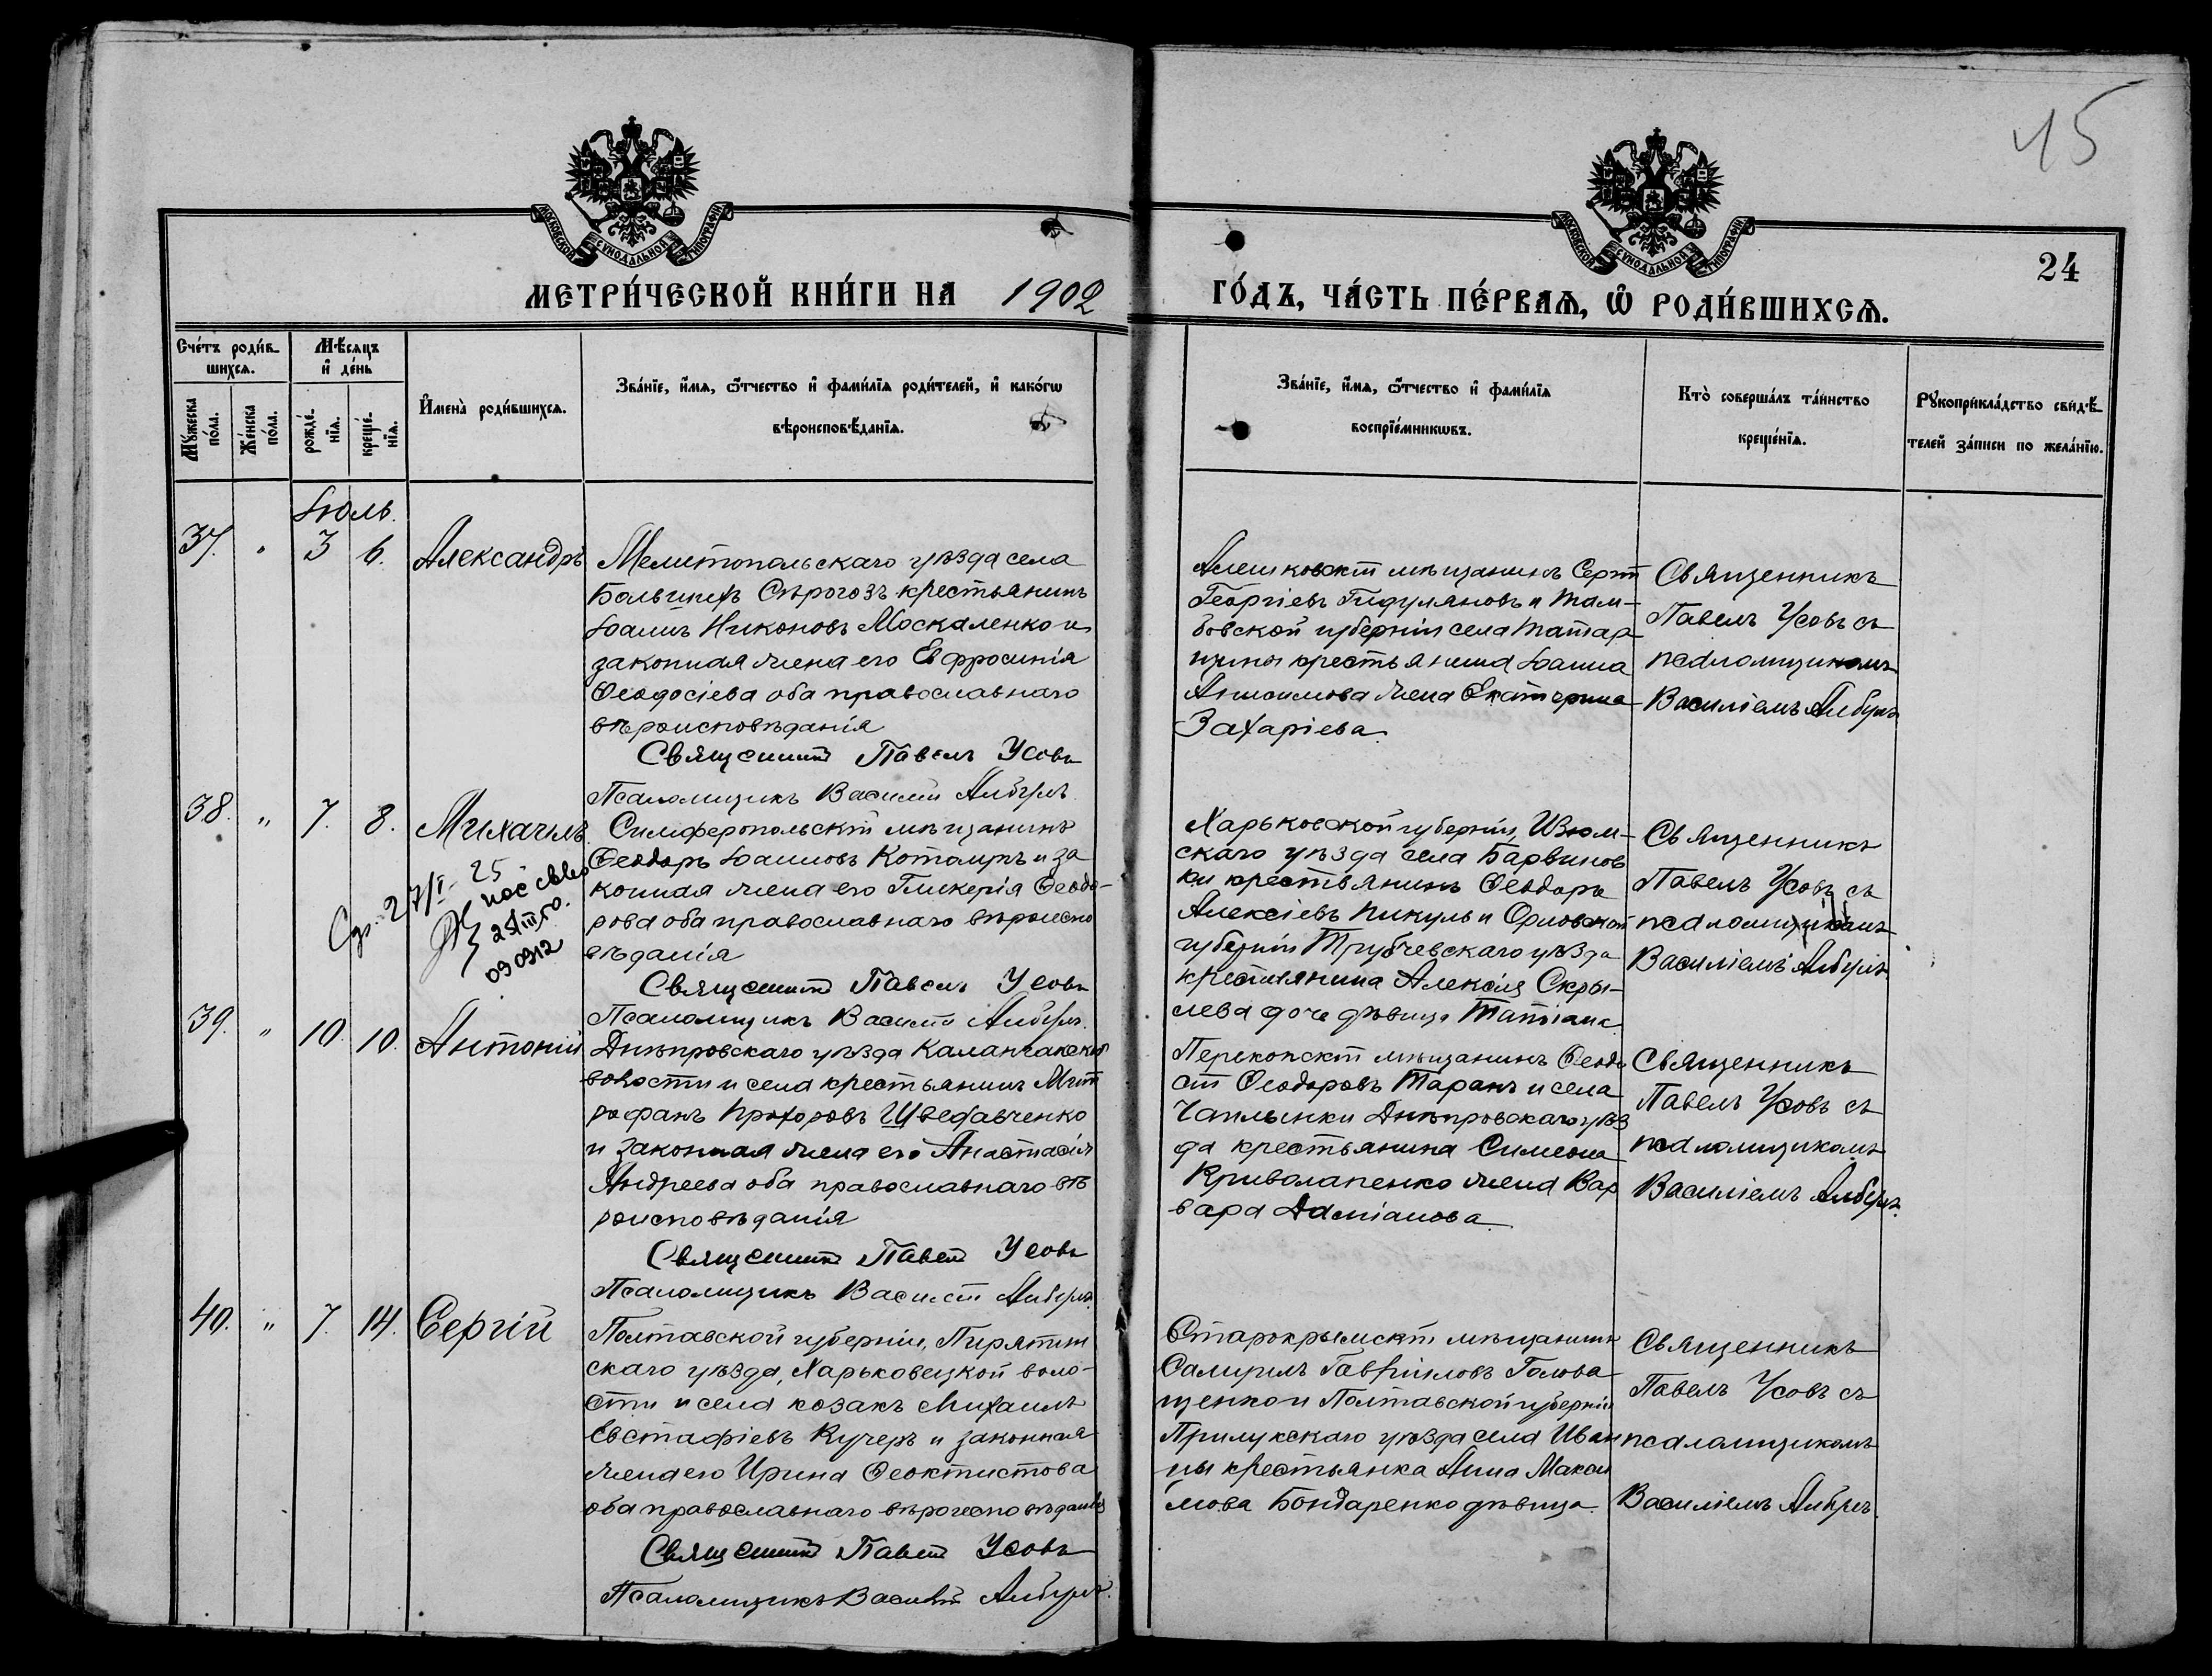 45
МОСКОВСКОЙ СУНОДАЛЬНОЙ ТИПОГРАФІИ
МОСКОВСКОЙ СУНОДАЛЬНОЙ ТИПОГРАФІИ
24
МЕТРИ́ЧЕСКОЙ КНИ́ГИ НА 1902
ГО́ДЪ, ЧА́СТЬ ПЕ́РВАѦ, Ѡ҆ РОДИ́ВШИХСѦ.
Сче́тъ роди́в-
шихсѧ.
Мѣ́сѧцъ
и҆ де́нь
Мꙋ́жеска
по́ла.
Же́нска
по́ла.
рожде́-
нїѧ.
креще́-
нїѧ.
И҆мена̀ роди́вшихсѧ.
Зва́нїе, и҆́мѧ, ѻ҆́тчество и҆ фами́лїѧ роди́телей, и҆ како́гѡ
вѣроисповѣ́данїѧ.
Зва́нїе, и҆́мѧ, ѻ҆́тчество и҆ фами́лїѧ
воспрїе́мникѡвъ.
Кто̀ соверша́лъ та́инство
креще́нїѧ.
Рꙋкоприкла́дство свидѣ́-
телей за́писи по жела́нїю.
Іюль.
37. „ 3 6. Александръ
Мелитопольскаго уѣзда села
Большихъ Сѣрогозъ крестьянинъ
Іоаннъ Никоновъ Москаленко и
законная жена его Евфросинія
Ѳеодосіева оба православнаго
вѣроисповѣданія
Священникъ Павелъ Усовъ
Псаломщикъ Василій
Алешковскій мѣщанинъ Сергій
Георгіевъ Гидуляновъ и Там-
бовской губерніи села Татар-
щины крестьянина Іоанна
Анисимова жена Екатерина
Захаріева.
Священникъ
Павелъ Усовъ съ
псаломщикомъ
Василіемъ
38. „ 7. 8. Михаилъ
Симферопольскій мѣщанинъ
Ѳеодоръ Іоанновъ Котляръ и за
конная жена его Гликерія Ѳеодо-
рова оба православнаго вѣроиспо
вѣданія
Священникъ Павелъ Усовъ
Псаломщикъ Василій
27/I 25
25/III 50.
030912
Харьковской губерніи, Изюм-
скаго уѣзда села Барвинов
ки крестьянинъ Ѳеодоръ
Алексіевъ Пикуль и Орловской
губерніи Трубчевскаго уѣзда
крестьянина Алексія Скры-
лева дочь дѣвица Татіана
Священникъ
Павелъ Усовъ съ
псаломщикомъ
Василіемъ
39. „ 10. 10. Антоній
Днѣпровскаго уѣзда Каланчакской
волости и села крестьянинъ Мит
рофанъ Прохоровъ Шведавченко
и законная жена его Анастасія
Андреева оба православнаго вѣ
роисповѣданія
Священникъ Павелъ Усовъ
Псаломщикъ Василій
Перекопскій мѣщанинъ Ѳеодо
сій Ѳеодоровъ Таранъ и села
Чаплынки Днѣпровскаго уѣз
да крестьянина Симеона
Криволапенко жена Вар
вара Даміанова.
Священникъ
Павелъ Усовъ съ
псаломщикомъ
Василіемъ
40. „ 7. 14. Сергій
Полтавской губерніи, Пирятин
скаго уѣзда, Харьковецкой воло-
сти и села козакъ Михаилъ
Евстафіевъ Кучеръ и законная
жена его Ирина Ѳеоктистова
оба православнаго вѣроисповѣданія
Священникъ Павелъ Усовъ
Псаломщикъ Василій
Старокрымскій мѣщанинъ
Самуилъ Гавріиловъ Голова
щенко и Полтавской губерніи
Прилукскаго уѣзда села Иван
цы крестьянка Анна Макси
мова Бондаренко дѣвица.
Священникъ
Павелъ Усовъ съ
псаломщикомъ
Василіемъ